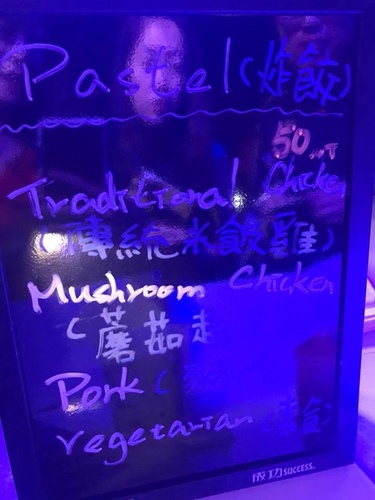 Pastel(炸餃)
50 NT
Traditional Chicken
(傳統米餵雞)
Mushroom Chicken
(蘑菇起
Pork(
Vegetarian(
成功 SUCCESS.